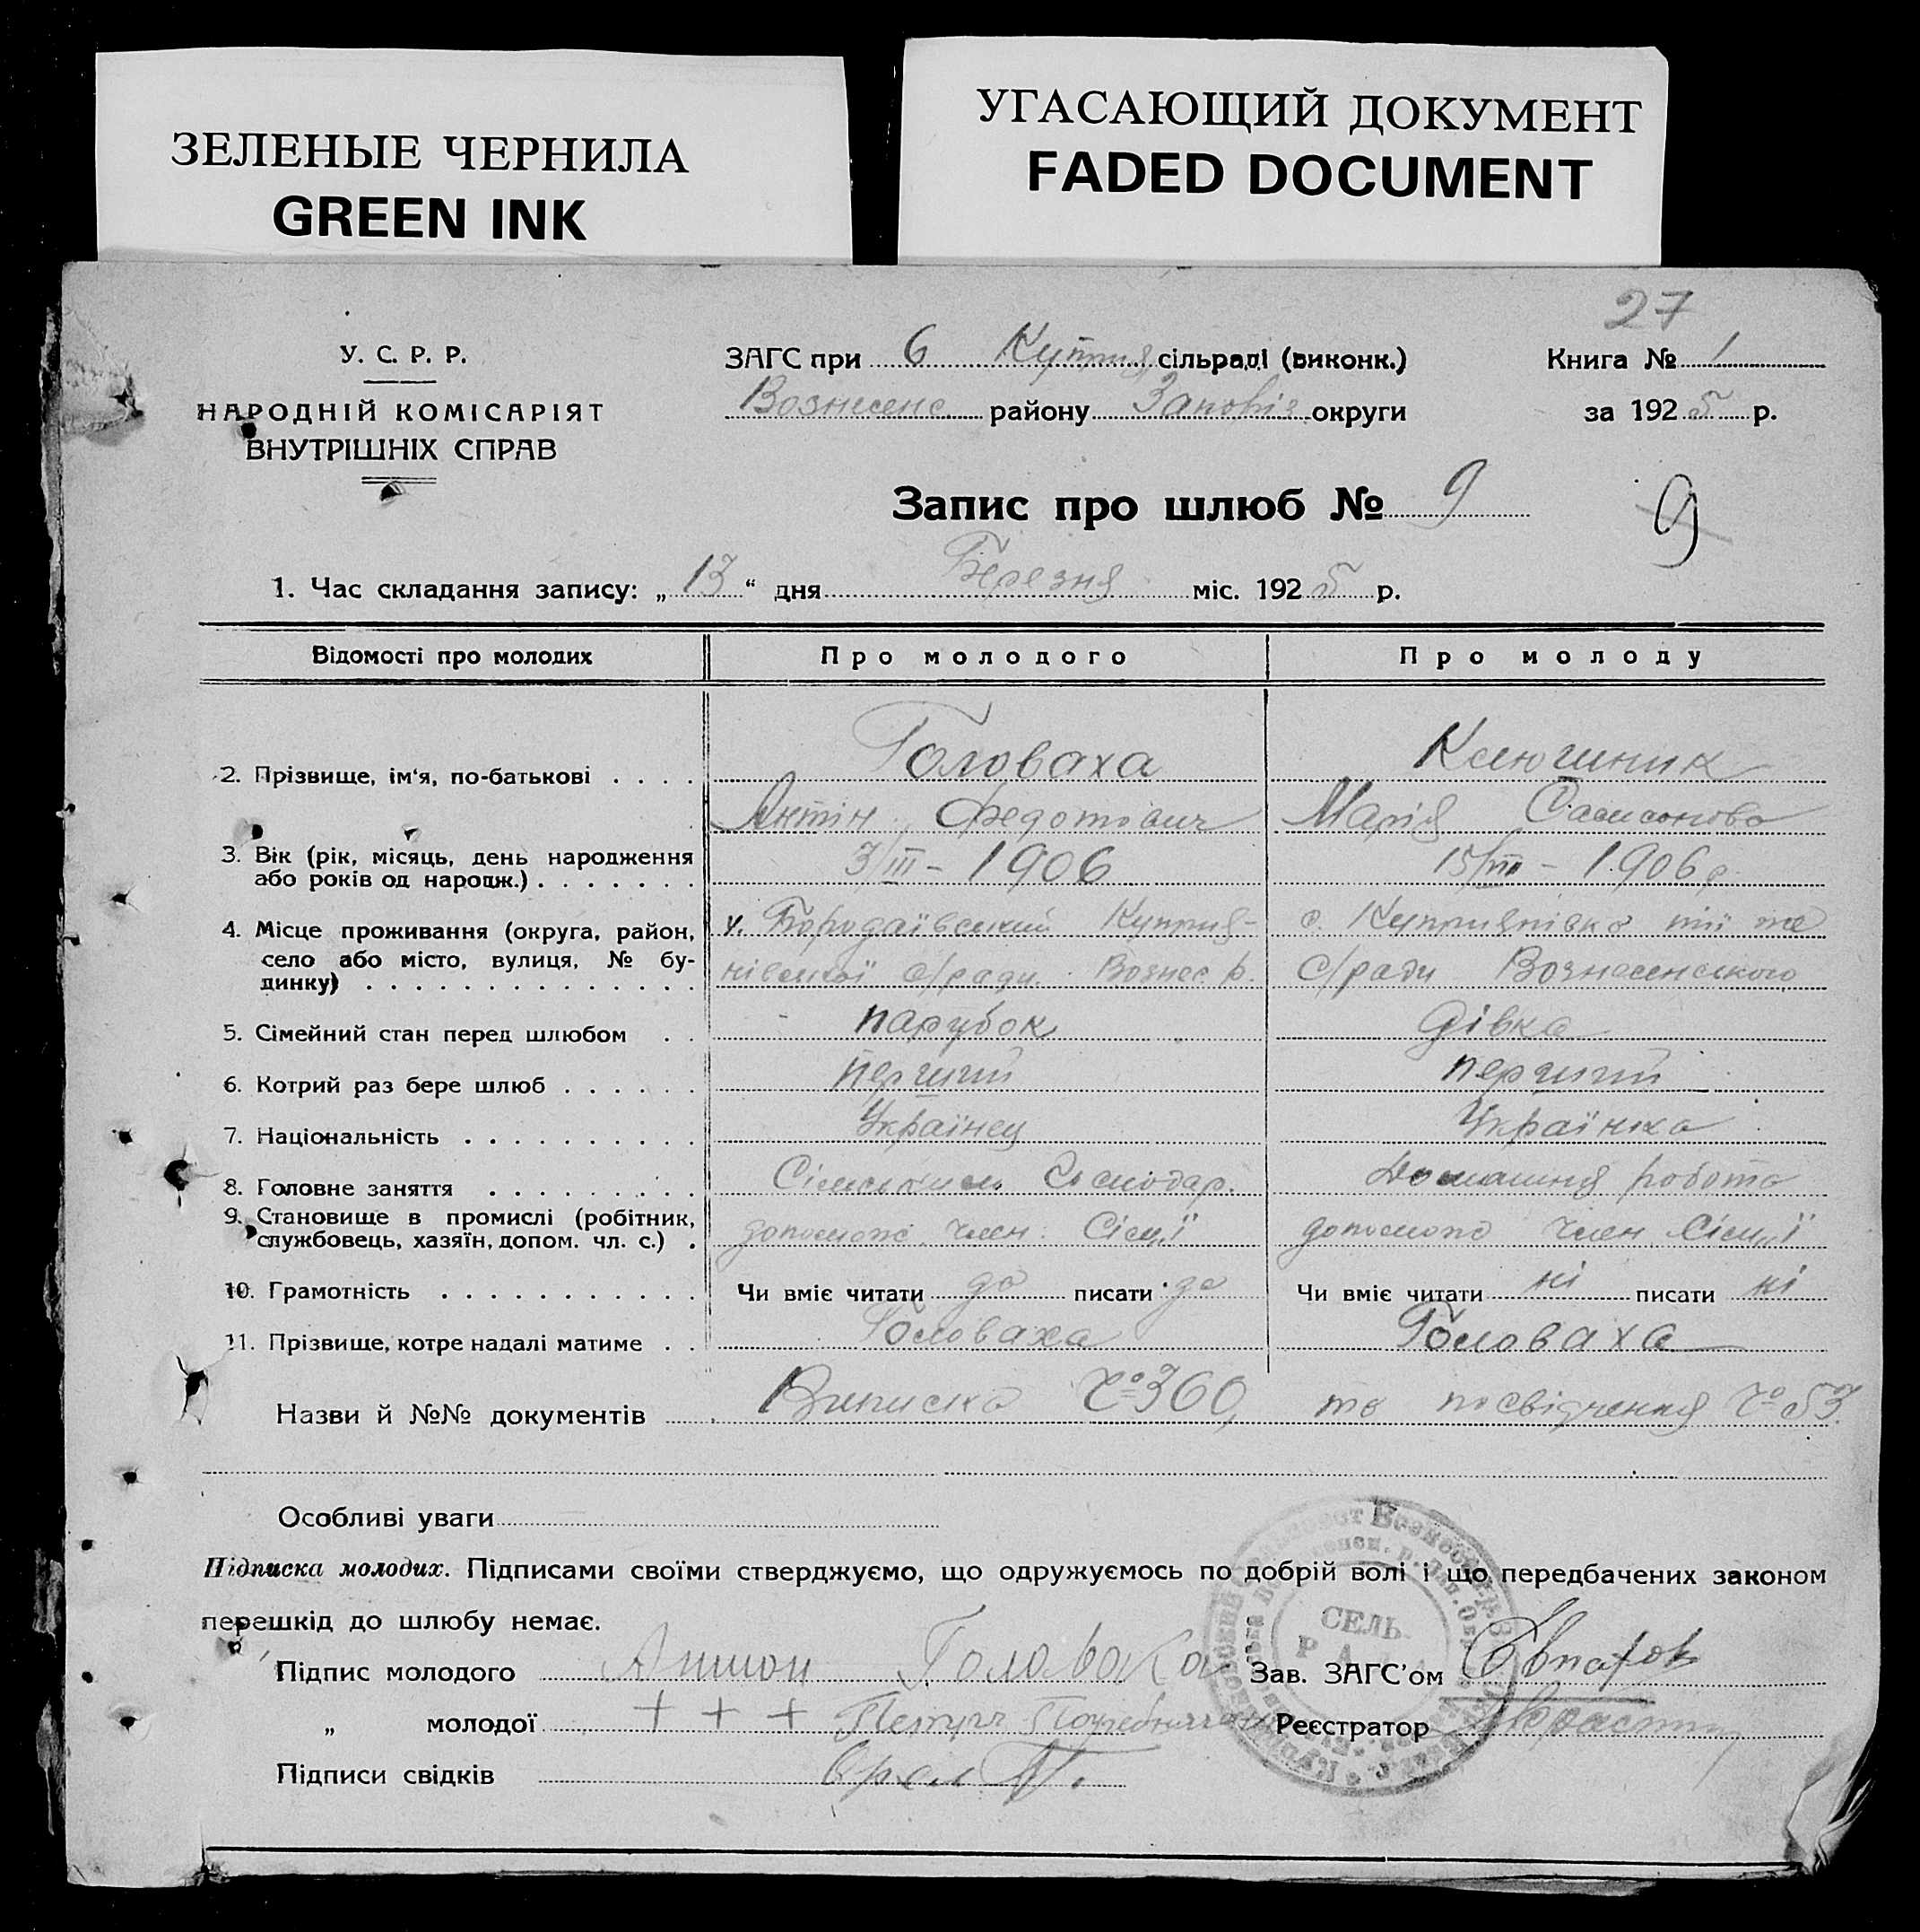 ЗЕЛЕНЫЕ ЧЕРНИЛА
GREEN INK
УГАСАЮЩИЙ ДОКУМЕНТ
FADED DOCUMENT
27
У. С. Р. Р.
НАРОДНІЙ КОМІСАРІЯТ
ВНУТРІШНІХ СПРАВ
ЗАГС при 6 Куприя сільраді (виконк.)
Вознесенс району Запоріз округи
Книга № 1
за 1925 р.
Запис про шлюб № 9
9
1. Час складання запису: „13“ дня Березня міс. 1925 р.
Відомості про молодих
Про молодого
Про молоду
2. Прізвище, ім‘я, по-батькові . . . .
Головаха
Клюшник
Антін Федотович
Марія Самсонова
3. Вік (рік, місяць, день народження
або років од народж.) . . . . . . .
3/III – 1906
15/VIII – 1906 р.
4. Місце проживання (округа, район,
село або місто, вулиця, № бу-
динку) . . . . . . . . . . . . . .
х. Бородаївський Куприя-
нівської с/ради. Вознес. р.
с. Куприянівка тії же
с/ради Вознесенського
5. Сімейний стан перед шлюбом . .
парубок
дівка
6. Котрий раз бере шлюб . . . . . .
перший
перший
7. Національність . . . . . . . . . .
Українец
Українка
8. Головне заняття . . . . . . . . .
Сільським Господар.
Домашня робота
9. Становище в промислі (робітник,
службовець, хазяїн, допом. чл. с.) .
допоможе член Сімії
допоможе член Сімії
10. Грамотність . . . . . . . . . . .
Чи вміє читати да писати да
Чи вміє читати ні писати ні
11. Прізвище, котре надалі матиме . .
Головаха
Головаха
Назви й №№ документів . Виписка № 360, та посвідчення № 53.
Особливі уваги
Підписка молодих. Підписами своїми стверджуємо, що одружуємось по добрій волі і що передбачених законом
перешкід до шлюбу немає.
СЕЛЬ-
РАДА
Підпис молодого Антон Головаха
Зав. ЗАГС’ом
„ молодої + + + Петро
Реєстратор
Підписи свідків